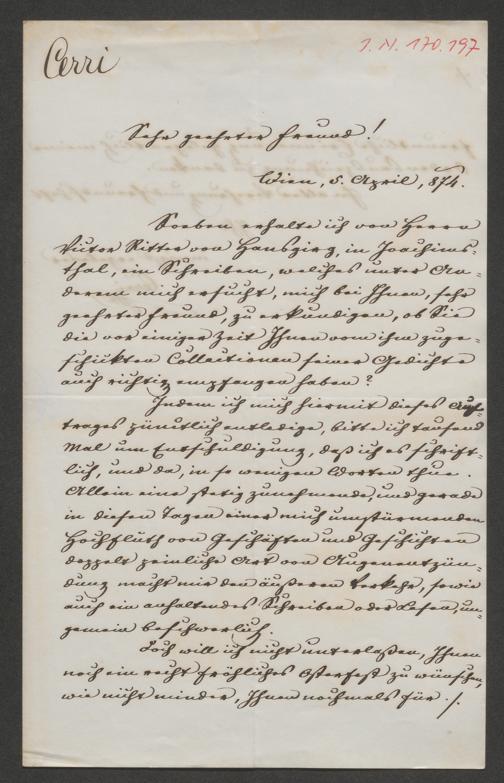 Cerri
I. N. 170.197
Sehr geehrter Freund!
Wien, 5. April, 874.
Soeben erhalte ich von Herrn
Victor Ritter von Hansgirg, in Joachims-
thal, ein Schreiben, welches unter An-
derem mich ersucht, mich bei Ihnen, sehr
geehrter Freund, zu erkundigen, ob Sie
die vor einiger Zeit Ihnen von ihm zuge-
schickten Collectionen seiner Gedichte
auch richtig empfangen haben?
Indem ich mich hiermit dieses Auf-
trages pünctlich entledige, bitte ich tausend
Mal um Entschuldigung, daß ich es schrift-
lich, und da, in so wenigen Worten thue.
Allein eine stetig zunehmende, und gerade
in diesen Tagen einer mich umstürmenden
Hochfluth von Geschäften und Geschichten
doppelt peinliche Art von Augenentzün-
dung macht mir den äußeren Verkehr, sowie
auch ein anhaltendes Schreiben oder Lesen, un-
gemein beschwerlich.
Doch will ich nicht unterlaßen, Ihnen
noch ein recht fröhliches Osterfest zu wünschen,
wie nicht minder, Ihnen nochmals für ./.